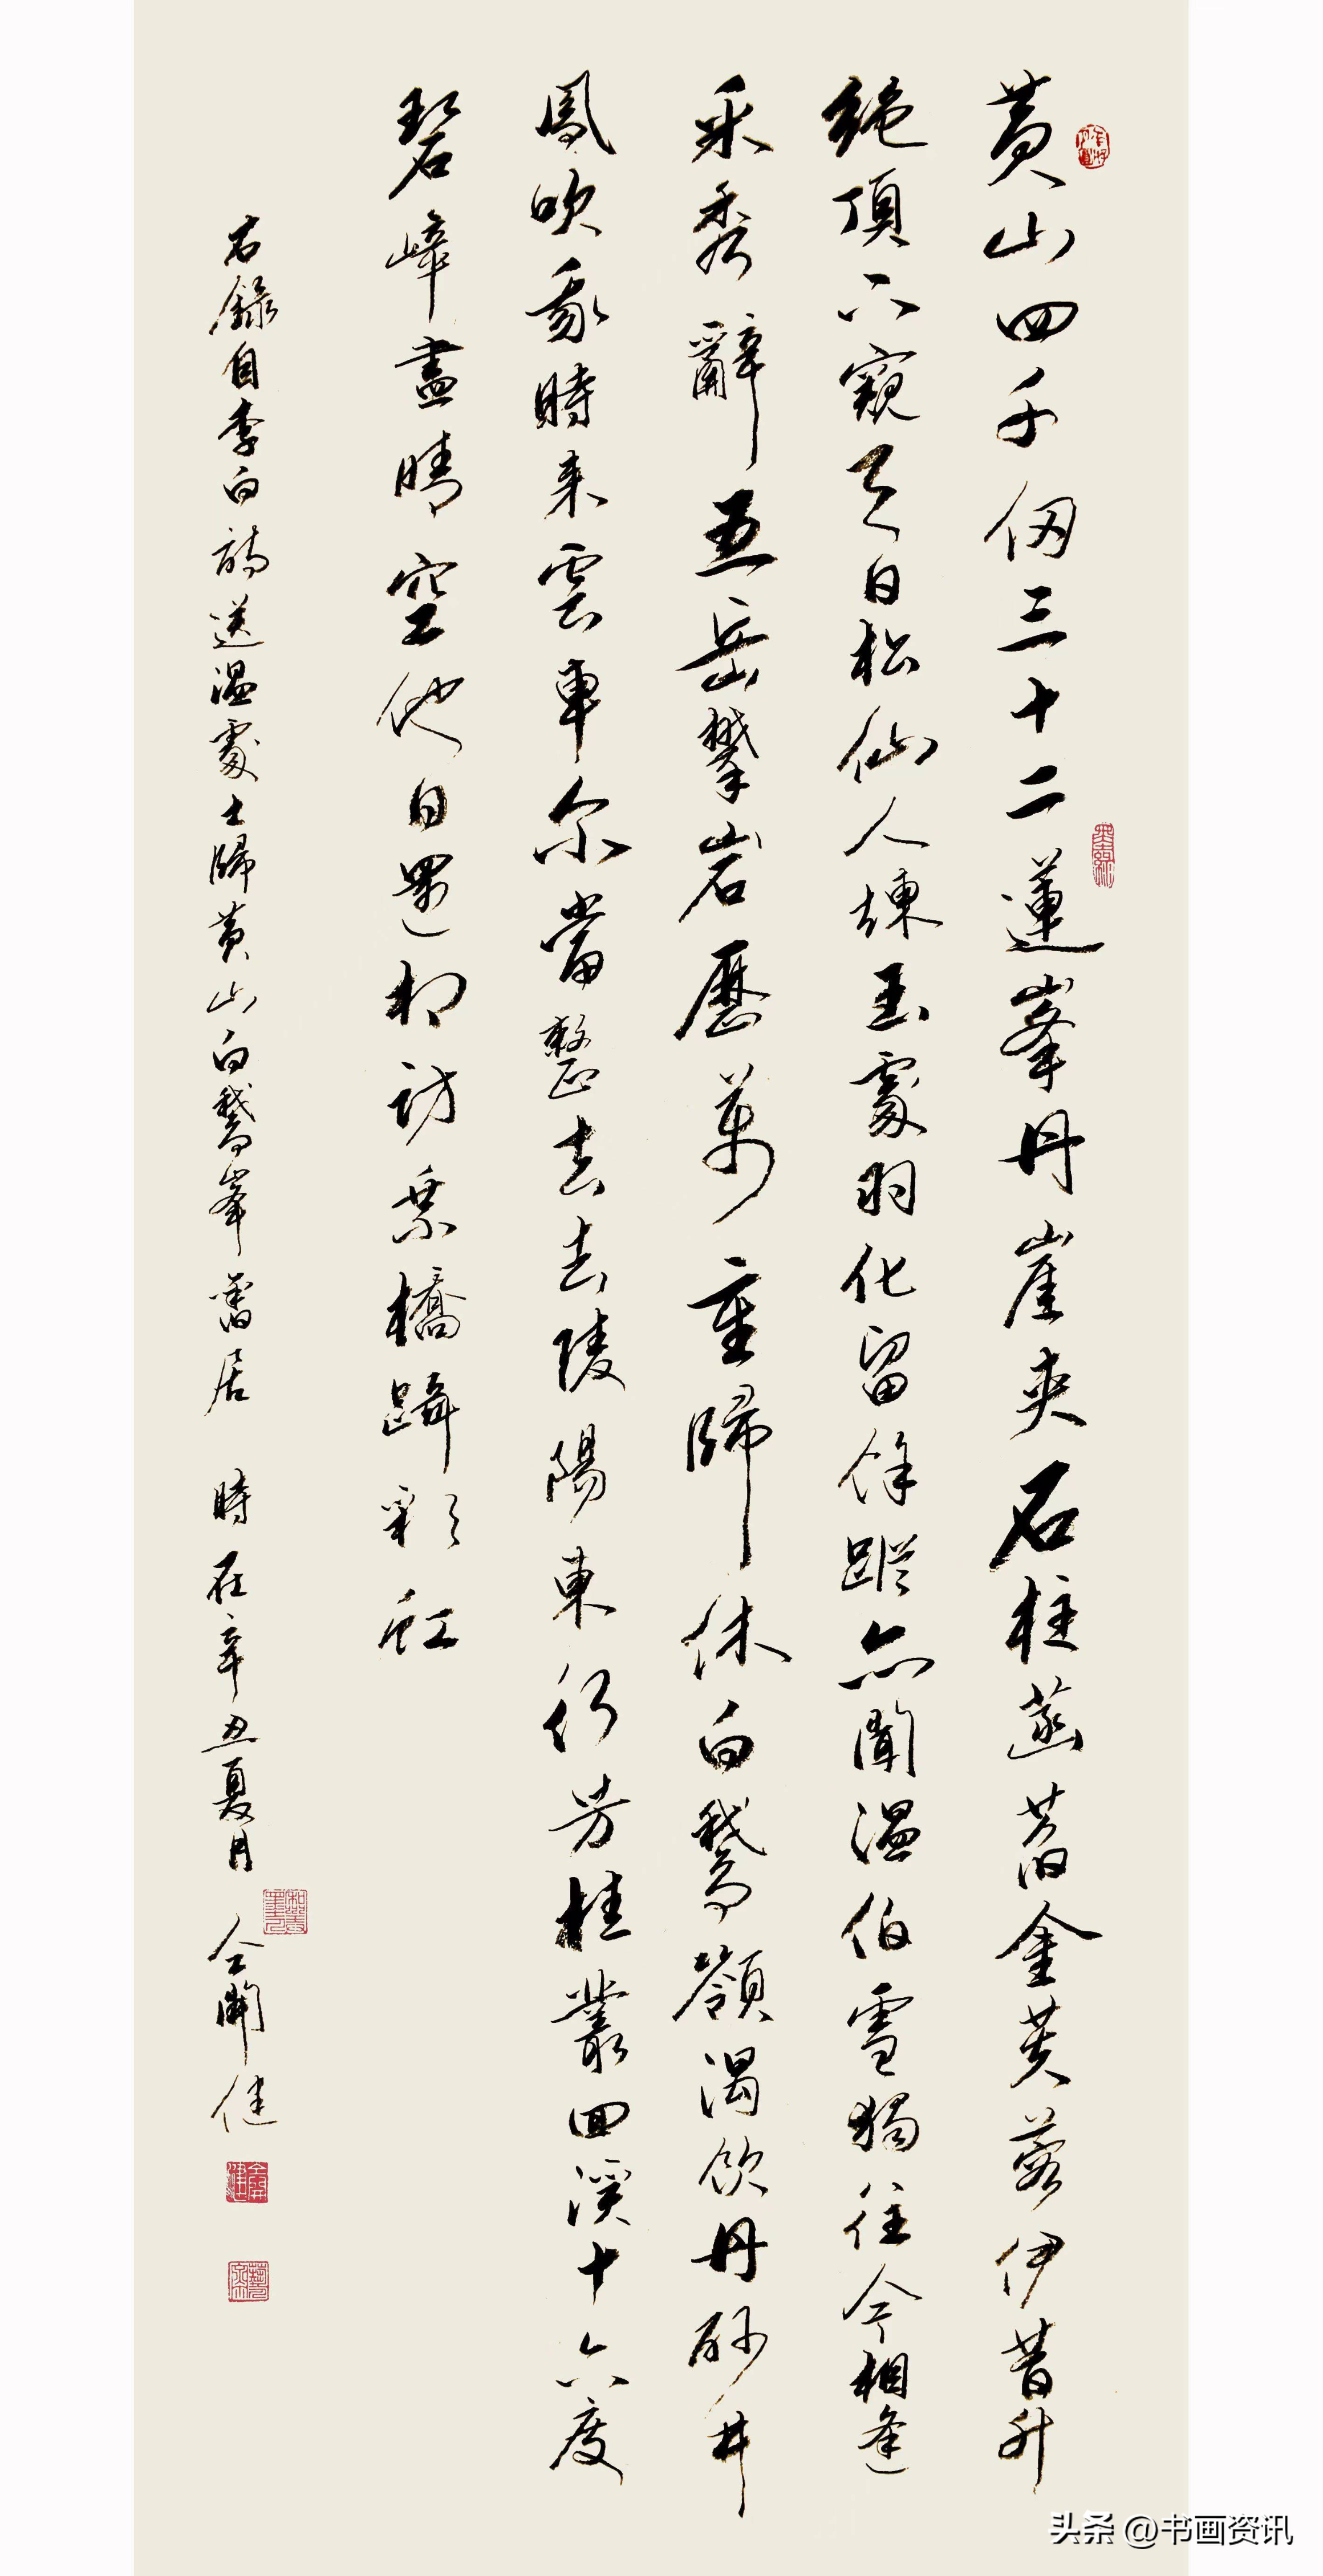 黄山四千仞三十二蓮峯丹崖夾石柱菡萏金芙蓉伊昔升
絶頂下窺天日松仙人煉玉處羽化留餘蹤亦聞温伯雪獨往今相逢
采秀辭五岳攀岩歷萬重歸休白鵝嶺渴飲丹砂井
鳳吹我時来雲車尔當整去去陵陽東行芳桂叢回溪十六度
碧嶂盡晴空他日還相訪乘橋躡彩虹
右錄自李白詩送温處士歸黄山白鵝峯舊居 時在辛丑夏月 仝開健
头条 @书画资讯